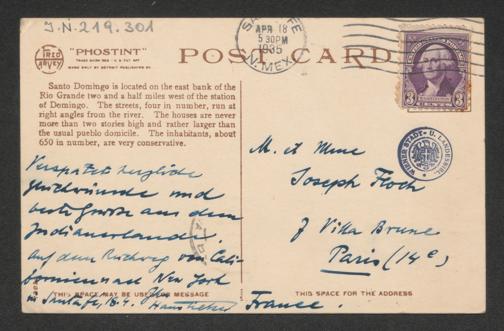 J.N. 219.301
FRED HARVEY
"PHOSTINT"
TRADE MARK REG. U.S. PAT. OFF.
MADE ONLY BY DETROIT PUBLISHING CO.
POST CARD
SANTA FE
APR 18
5 30PM
1935
N. MEX.
3 3
Santo Domingo is located on the east bank of the
Rio Grande two and a half miles west of the station
of Domingo. The streets, four in number, run at
right angles from the river. The houses are never
more than two stories high and rather larger than
the usual pueblo domicile. The inhabitants, about
650 in number, are very conservative.
WIENER STADT- U. LANDESBIBL.
Verspätet herzliche
Glückwünsche und
beste Grüsse aus dem
Indianerlande.
Auf dem Rückweg von Cali-
fornien nach New York
in Santa Fe, 18.4.
M. et Mme
Joseph Floch
7 Villa Brune
Paris (14e)
France.
THIS SPACE MAY BE USED FOR MESSAGE
THIS SPACE FOR THE ADDRESS